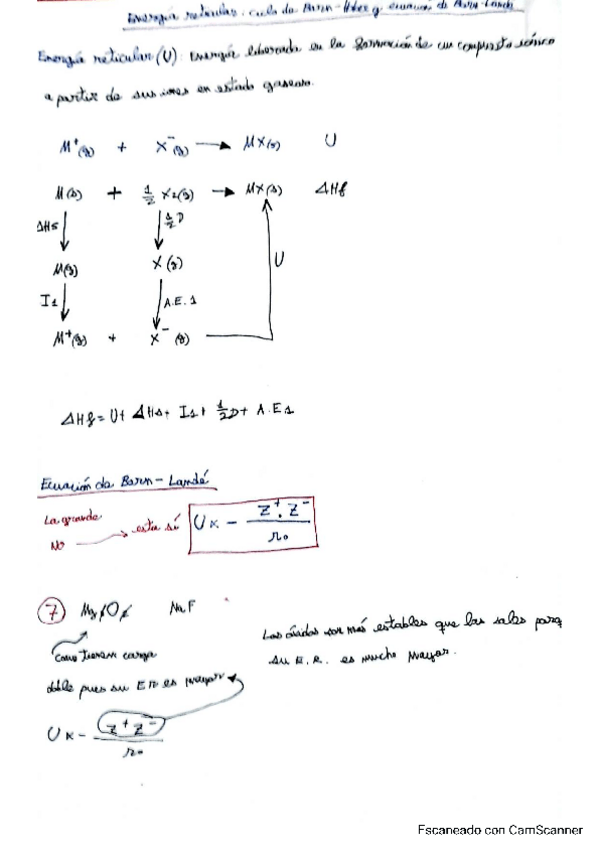 Energía reticular: ciclo de Born-Haber y ecuación de Born-Landé
Energía reticular (U): Energía liberada en la formación de un compuesto iónico
a partir de sus iones en estado gaseoso.
M⁺(g) + X⁻(g) → MX(s) U
M(s) + 1/2 X2(g) → MX(s) ΔHf
ΔHs 1/2D
M(g) X(g) U
I1 A.E.1
M⁺(g) + X⁻(g)
ΔHf = U + ΔHs + I1 + 1/2D + A.E1
Ecuación de Born-Landé
La grande
NO → esta sí U ∝ - Z⁺.Z⁻/r₀
7 Mg2O2 NaF
Como tienen carga
doble pues su ER es mayor
U ∝ - Z⁺Z⁻/r₀
Los óxidos son más estables que las sales porq
su E.R. es mucho mayor.
Escaneado con CamScanner